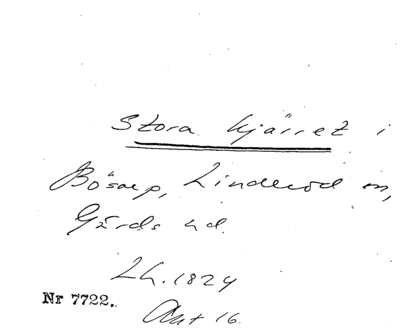 Stora kjärret i
Bösarp, Linderöd sn,
Gärds hd.
Lh. 1824
Nr 7722.
Akt 16.